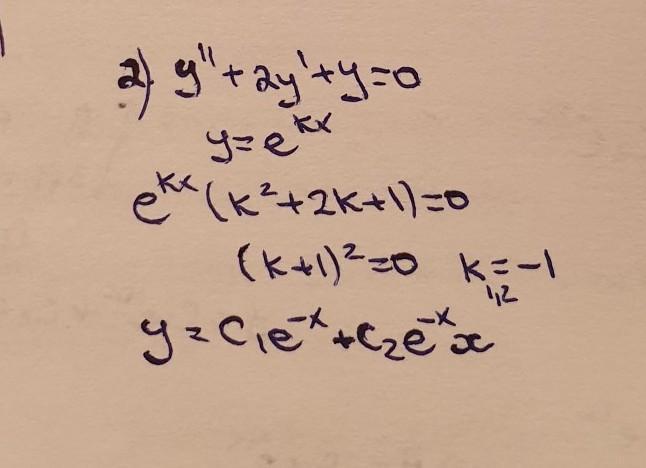 2) y''+2y'+y=0
y=e^{kx}
e^{kx}(k²+2k+1)=0
(k+1)²=0 k_{1,2}=-1
y=C₁e^{-x}+C₂e^{-x}x